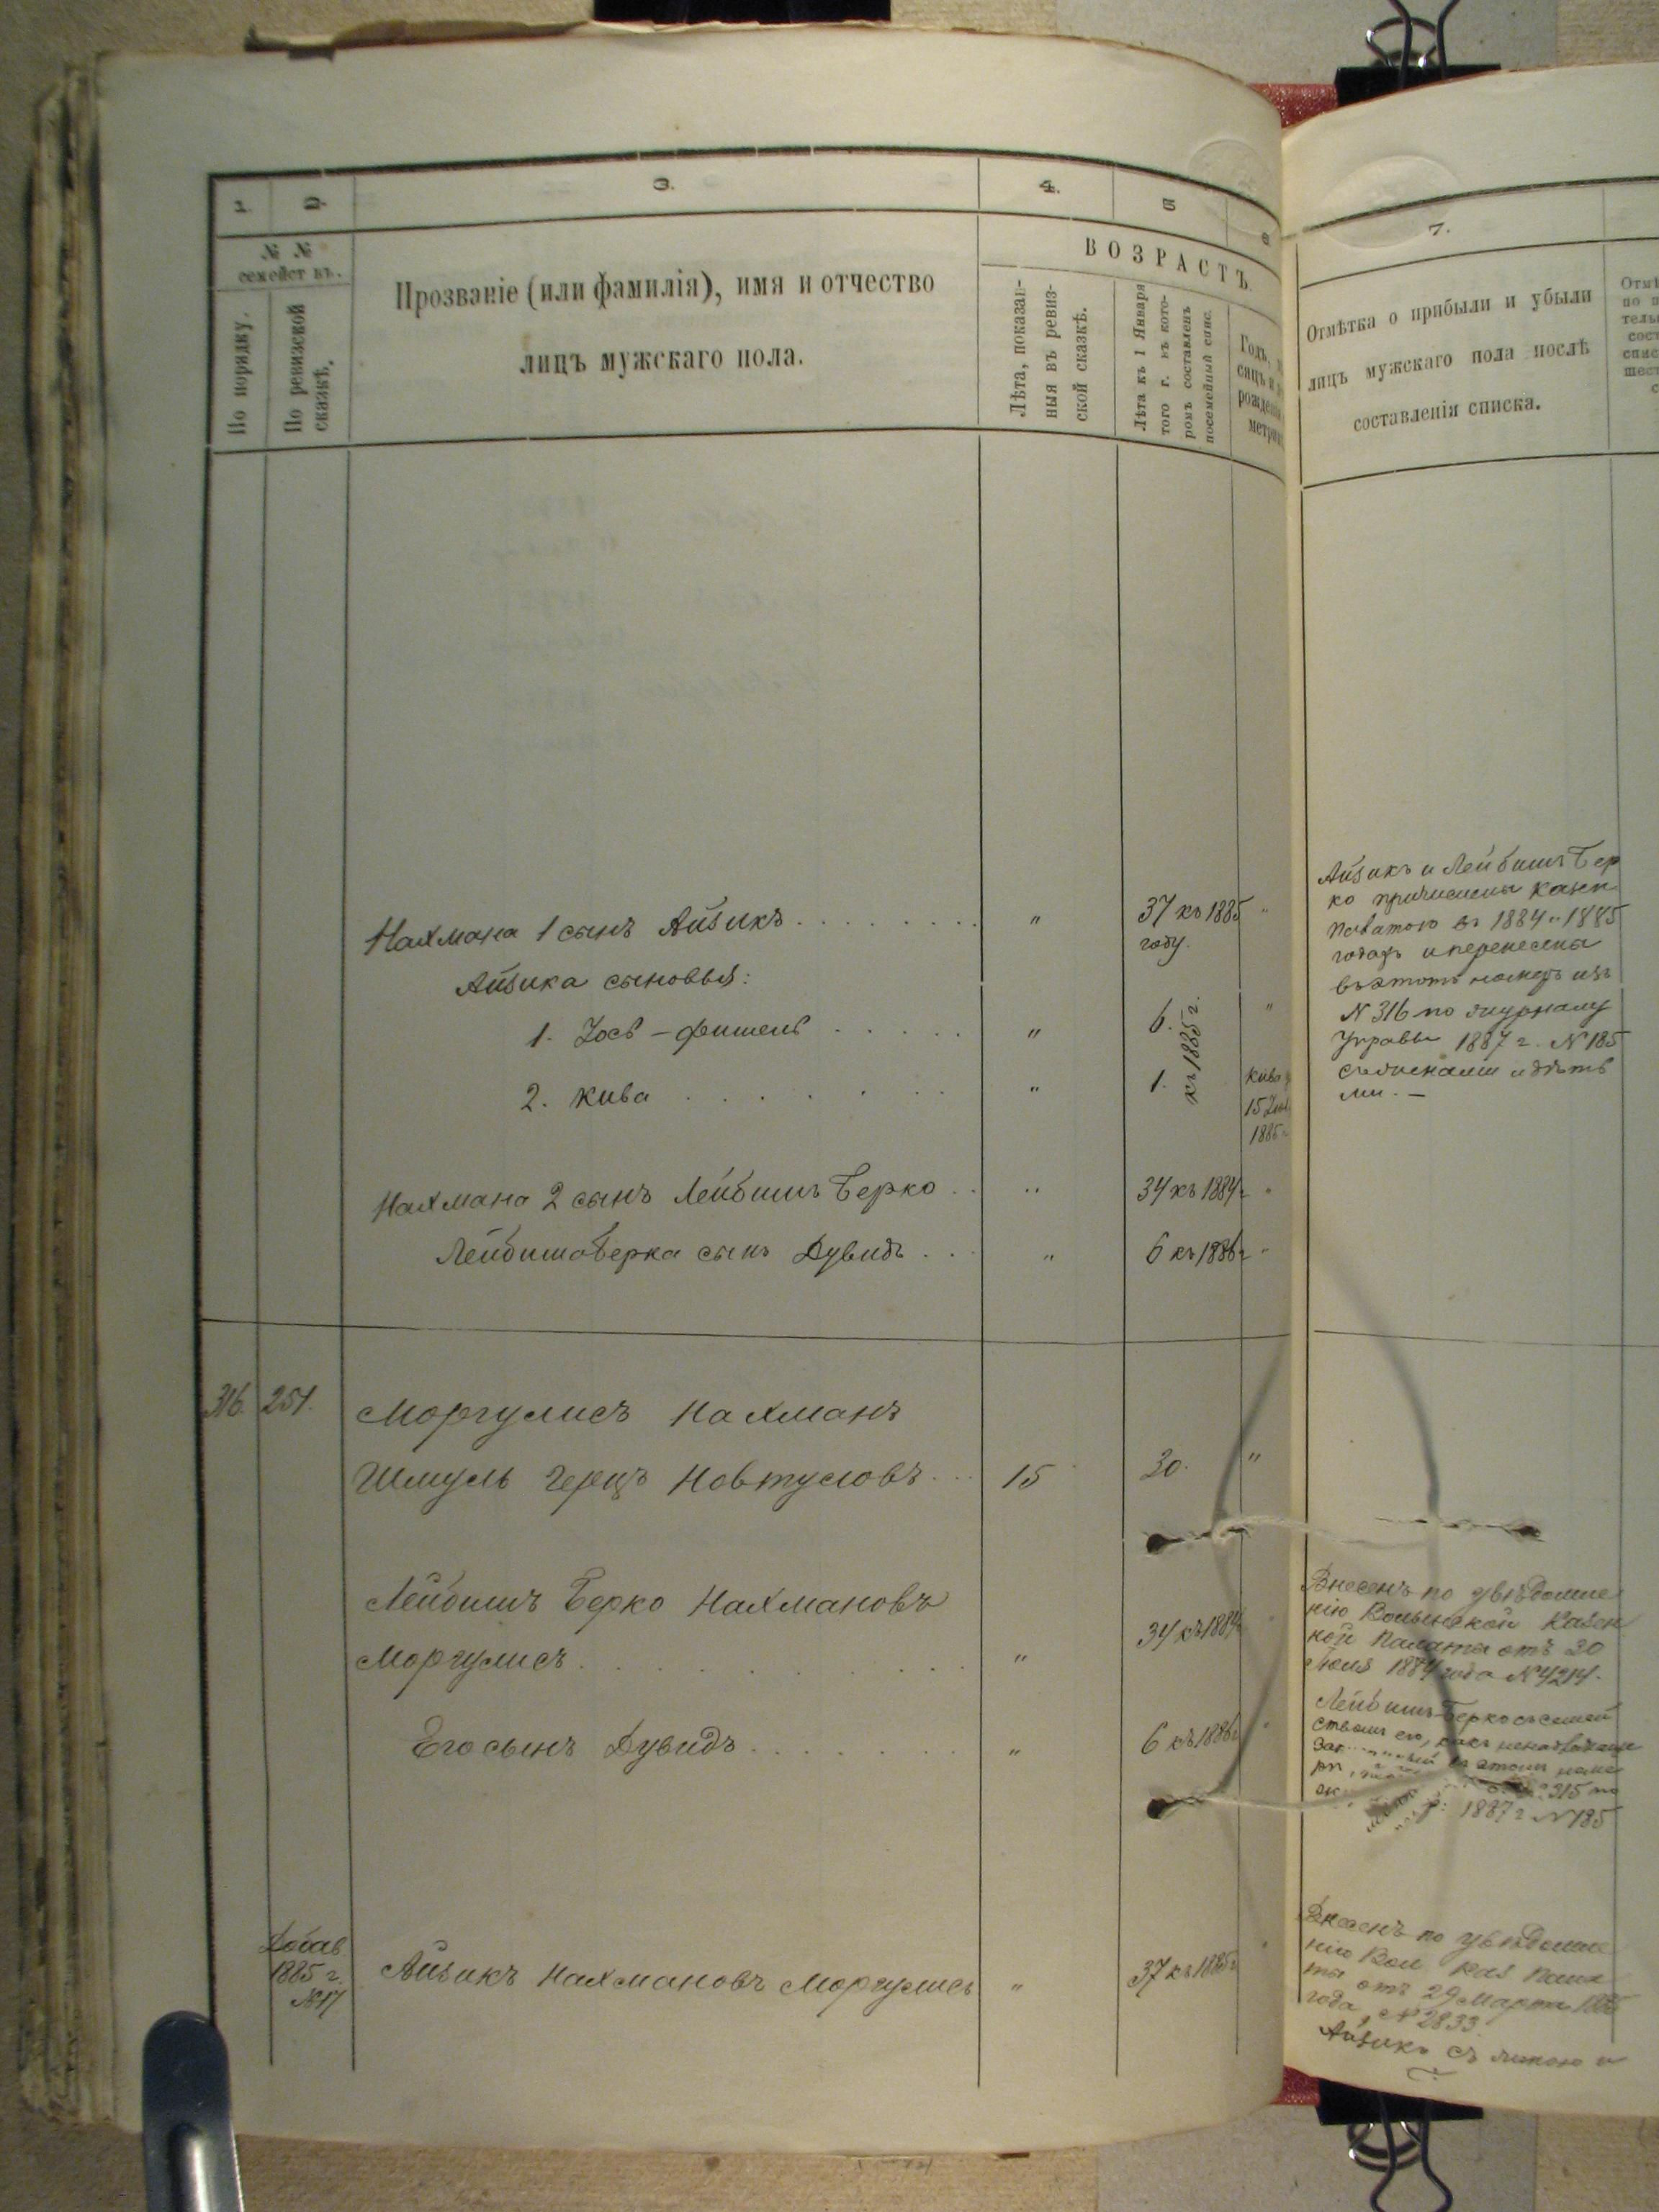 1.
2.
3.
4.
5
6
7.
№ №
семействъ.
По порядку.
По ревизской
сказкѣ.
Прозваніе (или фамилія), имя и отчество
лицъ мужскаго пола.
ВОЗРАСТЪ
Лѣта, показан-
ныя въ ревиз-
ской сказкѣ.
Лѣта къ 1 Января
того г. въ кото-
ромъ составленъ
посемейный спис.
Годъ,
рожденія
Отмѣтка о прибыли и убыли
лицъ мужскаго пола послѣ
составленія списка.
Нахмана 1 сынъ Айзикъ
"
37 къ 1885
году.
"
Айзика сыновья:
1. Іосъ-Фишель
"
6.
"
къ 1885 г.
2. Кива
"
1.
Кива
15
1885 г.
Нахмана 2 сынъ Лейбишъ Берко
"
34 къ 1884 г
"
Лейбиша Берка сынъ Дувидъ
"
6 къ 1886 г
"
Айзикъ и Лейбишъ Бер
ко причислены Казен
Палатою въ 1884 и 1885
годахъ и перенесены
въ этотъ номеръ изъ
№ 316 по журналу
Управы 1887 г. № 185
съ женами и дѣть
ми. —
316. 251.
Моргулисъ Нахманъ
Шмуль Герцъ Новтуловъ
15
30.
"
Лейбишъ Берко Нахмановъ
Моргулисъ
"
34 къ 1884
Внесенъ по увѣдомле
нію Волынской Казен
ной Палаты отъ 20
Іюля 1884 года № 4214.
Его сынъ Дувидъ
"
6 къ 1886 г
Лейбишъ Берко съ семей
ствомъ его, какъ
въ этомъ номе
315 по
1887 г № 185
Добав
1885 г.
№ 17
Айзикъ Нахмановъ Моргулисъ
"
37 къ 1885 г
Внесенъ по увѣдомле
нію Вол Каз Пала
ты отъ 29 Марта 1885
года, № 2833.
Айзикъ съ женою и